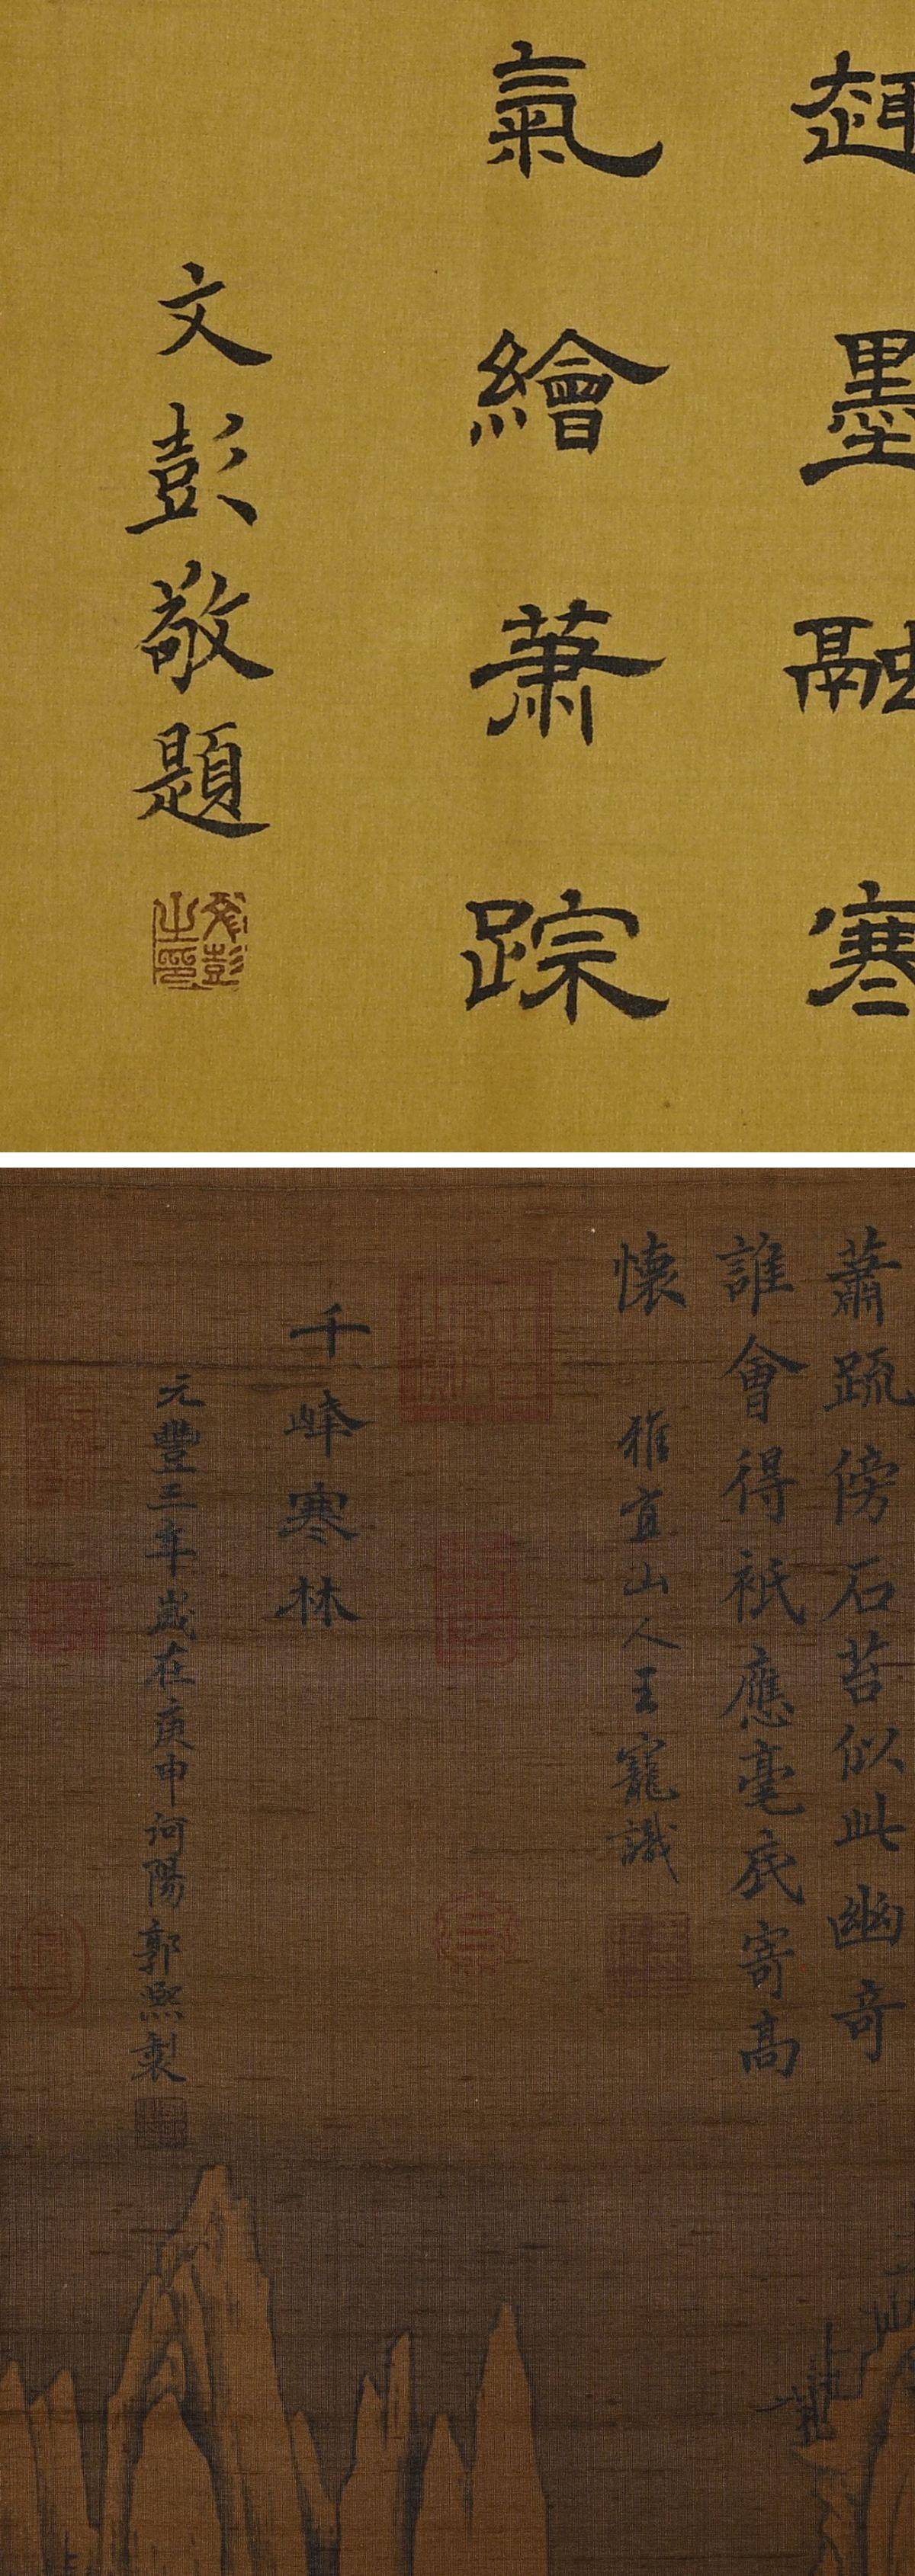 趙墨融寒
氣繪蕭踪
文彭敬題
文彭之印
蕭疏傍石苔似此幽奇
誰會得祇應毫底寄高
懷
雅宜山人王寵識
千峰寒林
元豐三年歲在庚申河陽郭熙製